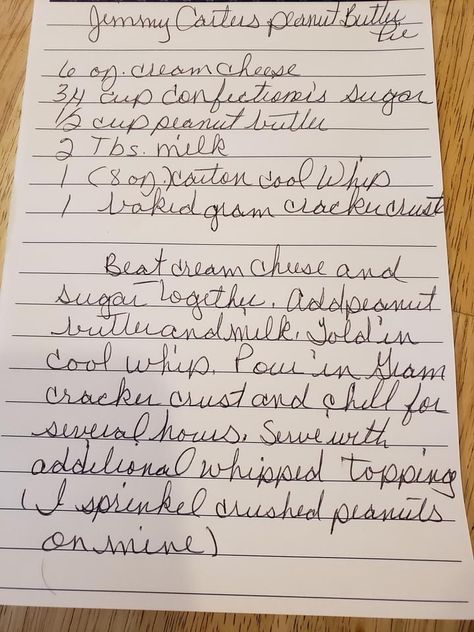 Jimmy Carters peanut Butter
Pie
6 oz. cream cheese
3/4 cup confectioner's sugar
1/2 cup peanut butter
2 Tbs. milk
1 (8 oz.) carton Cool Whip
1 baked gram cracker crust
Beat cream cheese and
sugar together. Add peanut
butter and milk. Fold in
cool whip. Pour in gram
cracker crust and chill for
several hours. Serve with
additional whipped topping
(I sprinkel crushed peanuts
on mine)